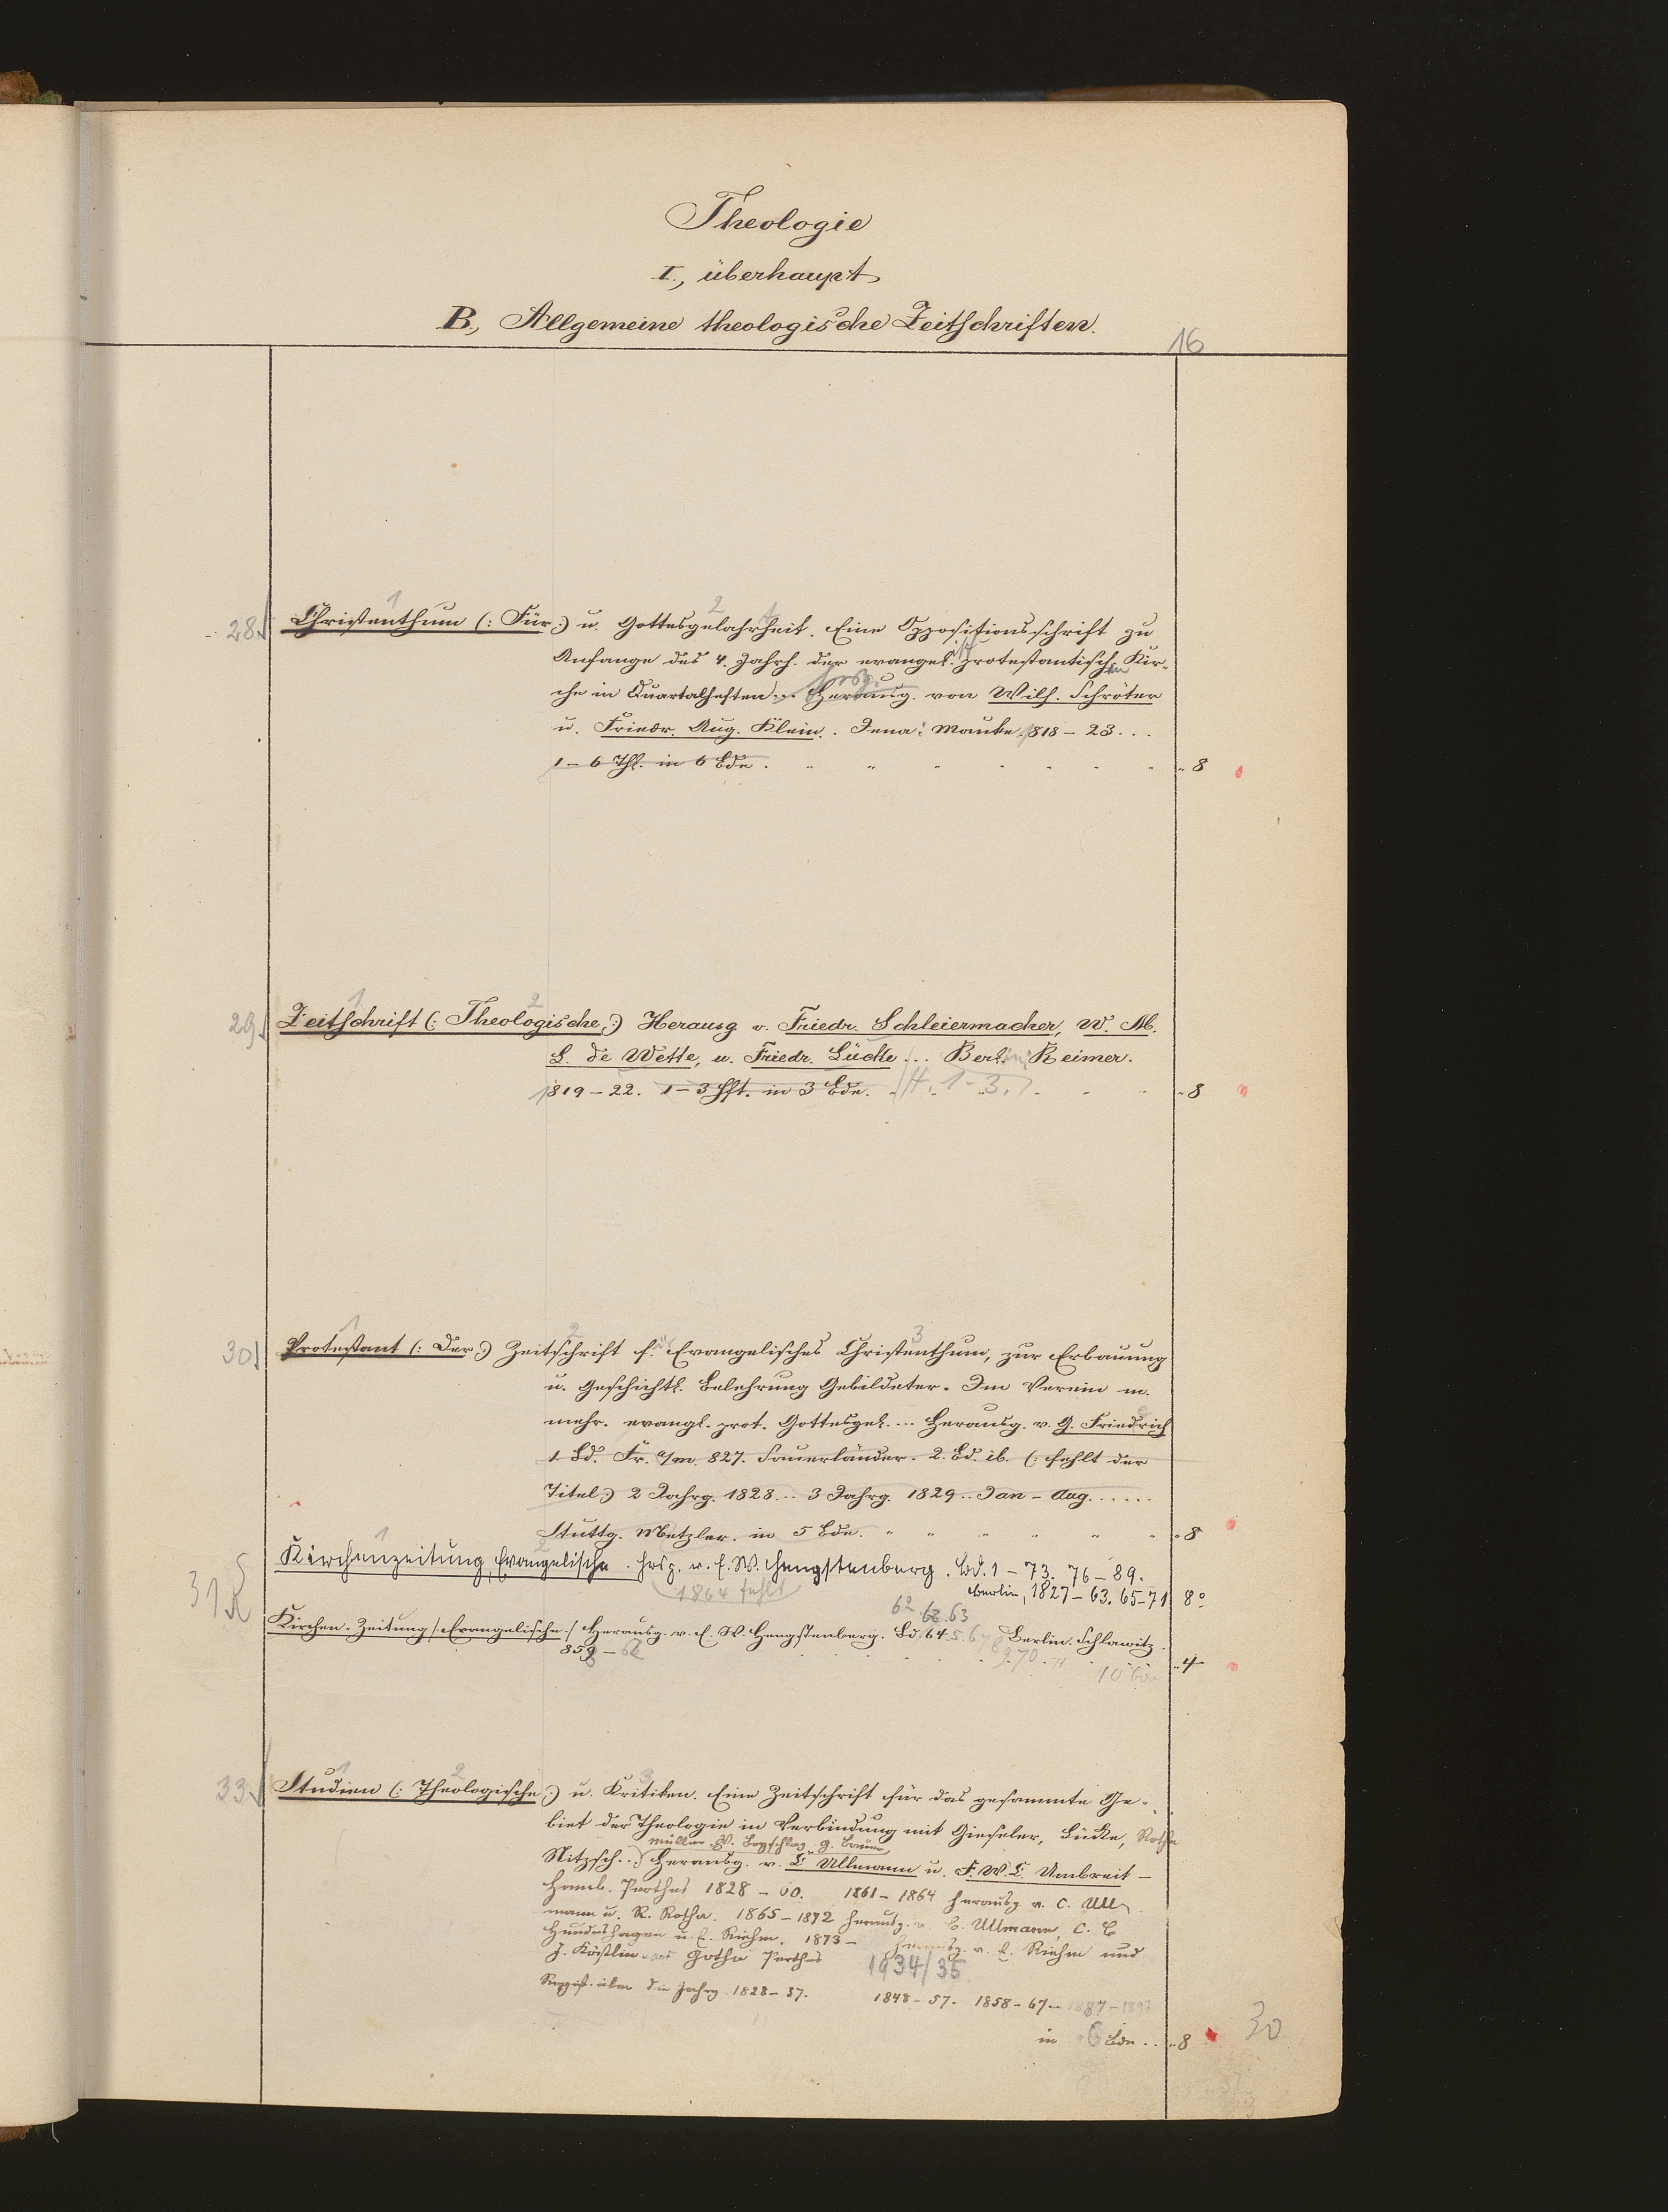 Theologie
I., überhaupt
B., Allgemeine theologische Zeitschriften.
16
28 Christenthum (: Für :) u. Gottesgelahrtheit. Eine Oppositionsschrift zu
Anfange des 4. Jahrh. der evangel. protestantischen Kir-
che in Quartalheften... Herausg. von Wilh. Schröter
hrsg.
u. Friedr. Aug. Klein. Jena: Mauke 1818 - 23...
1 - 6 Thl. in 6 Bde. 8
29 Zeitschrift (: Theologische :) Herausg v. Friedr. Schleiermacher, W. M.
L. de Wette, u. Friedr. Lücke... Berlin: Reimer.
1819 - 22. 1 - 3 Hft. in 3 Bde. H. 1-3. 8
30 Protestant (: Der :) Zeitschrift f. Evangelisches Christenthum, zur Erbauung
u. Geschichtl. Belehrung Gebildeter. Im Verein m.
mehr. evangl. prot. Gottesgel.... Herausg. v. G. Friedrich
1. Bd. Fr. a/m. 827. Sauerländer. 2. Bd. ib. (: fehlt der
Titel :) 2 Jahrg. 1828... 3 Jahrg. 1829.. Jan - Aug......
Stuttg. Metzler. in 5 Bde. 8
31 Kirchenzeitung, Evangelische. hrsg. v. E. W. Hengstenberg. Bd. 1 - 73. 76 - 89.
1864 fehlt
Berlin, 1827 - 63. 65-71 8°
62. 62. 63
Kirchen-Zeitung /: Evangelische :/ Herausg. v. E. W. Hengstenberg. Bd. 64. 5. 6 Berlin. Schlawitz.
859 - 62 9.70. 71 4
10 Bde
33 Studien (: Theologische :) u. Kritiken. Eine Zeitschrift für das gesammte Ge-
biet der Theologie in Verbindung mit Gieseler, Lücke, Rothe
Müller. W. Beyschlag. G. Baur
Nitzsch..) Herausg. v. C. Ullmann u. F. W. C. Umbreit -
Hamb. Perthes 1828 - 60. 1861 - 1864 herausg. v. C. Ull-
mann u. R. Rothe. 1865 - 1872 herausg. v. C. Ullmann, C. B
Hundeshagen u. E. Riehm. 1873 - herausg. v. E. Riehm und
J. Köstlin Gotha Perthes 1934/35
Regist. über die Jahrg. 1828 - 37. 1848 - 57. 1858 - 67 - 1887 - 1897
in 6 Bde... 8
30